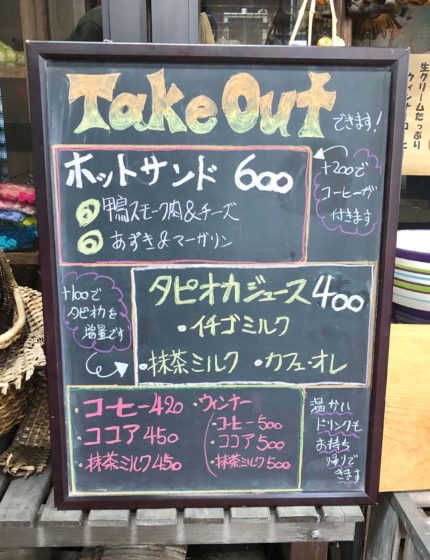 Take Out できます!
ホットサンド 600
◎鴨スモーク肉&チーズ
◎あずき&マーガリン
+200で
コーヒーが
付きます
タピオカジュース 400
・イチゴミルク
・抹茶ミルク ・カフェ・オレ
+100で
タピオカを
増量です
・コーヒー420
・ココア 450
・抹茶ミルク 450
・ウィンナー
・コーヒー500
・ココア 500
・抹茶ミルク 500
温かい
ドリンクも
お持ち
帰りで
きます
生クリームたっぷり